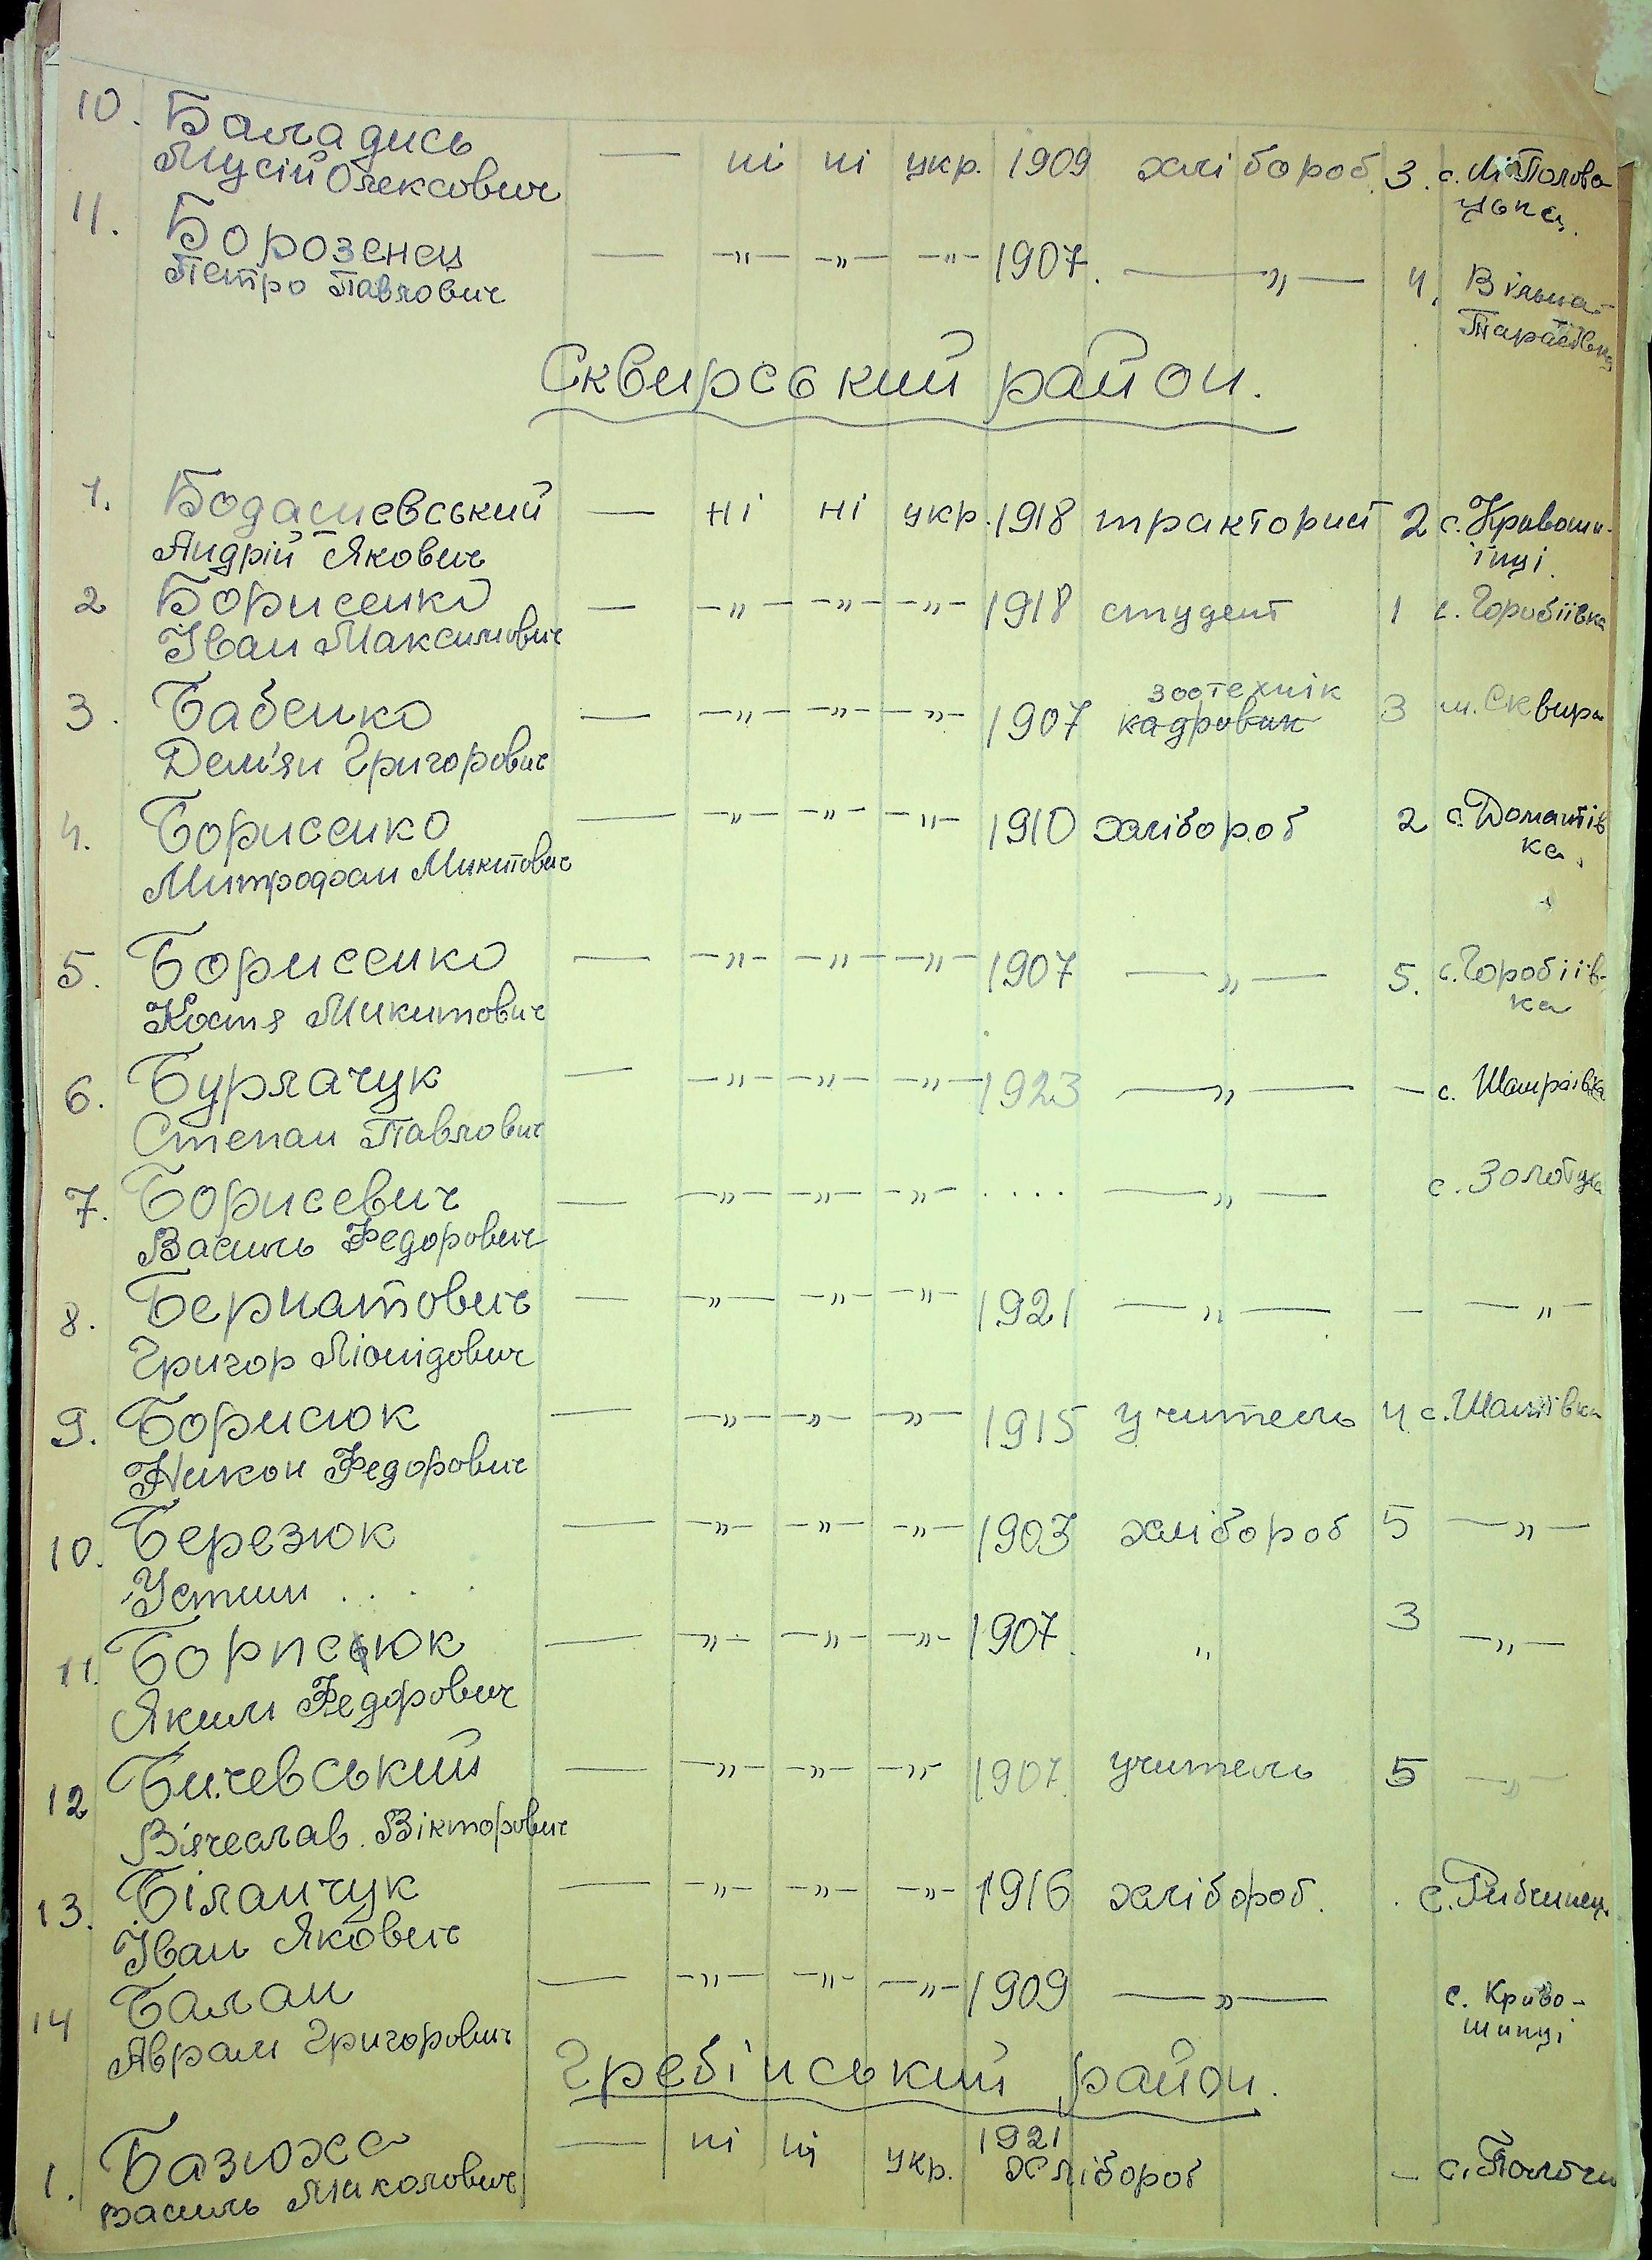 10. Баладись
Мусій Олексович — ні ні укр. 1909 хлібороб. 3. с. Полова
цька.
11. Борозенец
Петро Павлович — —„— —„— —„— 1907. —„— 4. Вільна-
Тарасівка
Сквирський район.
1. Бодасиевський — ні ні укр. 1918 тракторист 2 с. Кривоши-
Андрій Якович їнці.
2 Борисенко — —„— —„— —„— 1918 студент 1 с. Горобіївка
Іван Максимович
зоотехнік
3. Бабенко — —„— —„— —„— 1907 кадровик 3 м. Сквира
Дем'ян Григорович
4. Борисенко — —„— —„— —„— 1910 хлібороб 2 с. Домантів
Митрофан Микитович ка.
5. Борисенко — —„— —„— —„— 1907 —„— 5. с. Горобіїв-
Костя Микитович ка
6. Бурлачук — —„— —„— —„— 1923 —„— — с. Шамраївка
Степан Павлович
7. Борисевич — —„— —„— —„— .... —„— с. Золотуха
Василь Федорович
8. Бернатович — —„— —„— —„— 1921 —„— — —„—
Григор Ліонідович
9. Борисюк — —„— —„— —„— 1915 учитель 4 с.
Никон Федорович
10. Березюк — —„— —„— —„— 1903 хлібороб 5 —„—
Устин . . . .
11. Борисюк — —„— —„— —„— 1907. „ 3 —„—
Яким Федорович
12 Бичевський — —„— —„— —„— 1907. учитель 5 —„—
Вячеслав. Вікторович
13. Біланчук — —„— —„— —„— 1916 хлібороб. с. Рибчинец.
Іван Якович
14 Балан — —„— —„— —„— 1909 —„— с. Криво-
Аврам Григорович шинці
Гребінський район.
1. Базюха — ні ні укр. 1921
Василь Миколович хлібороб — с.